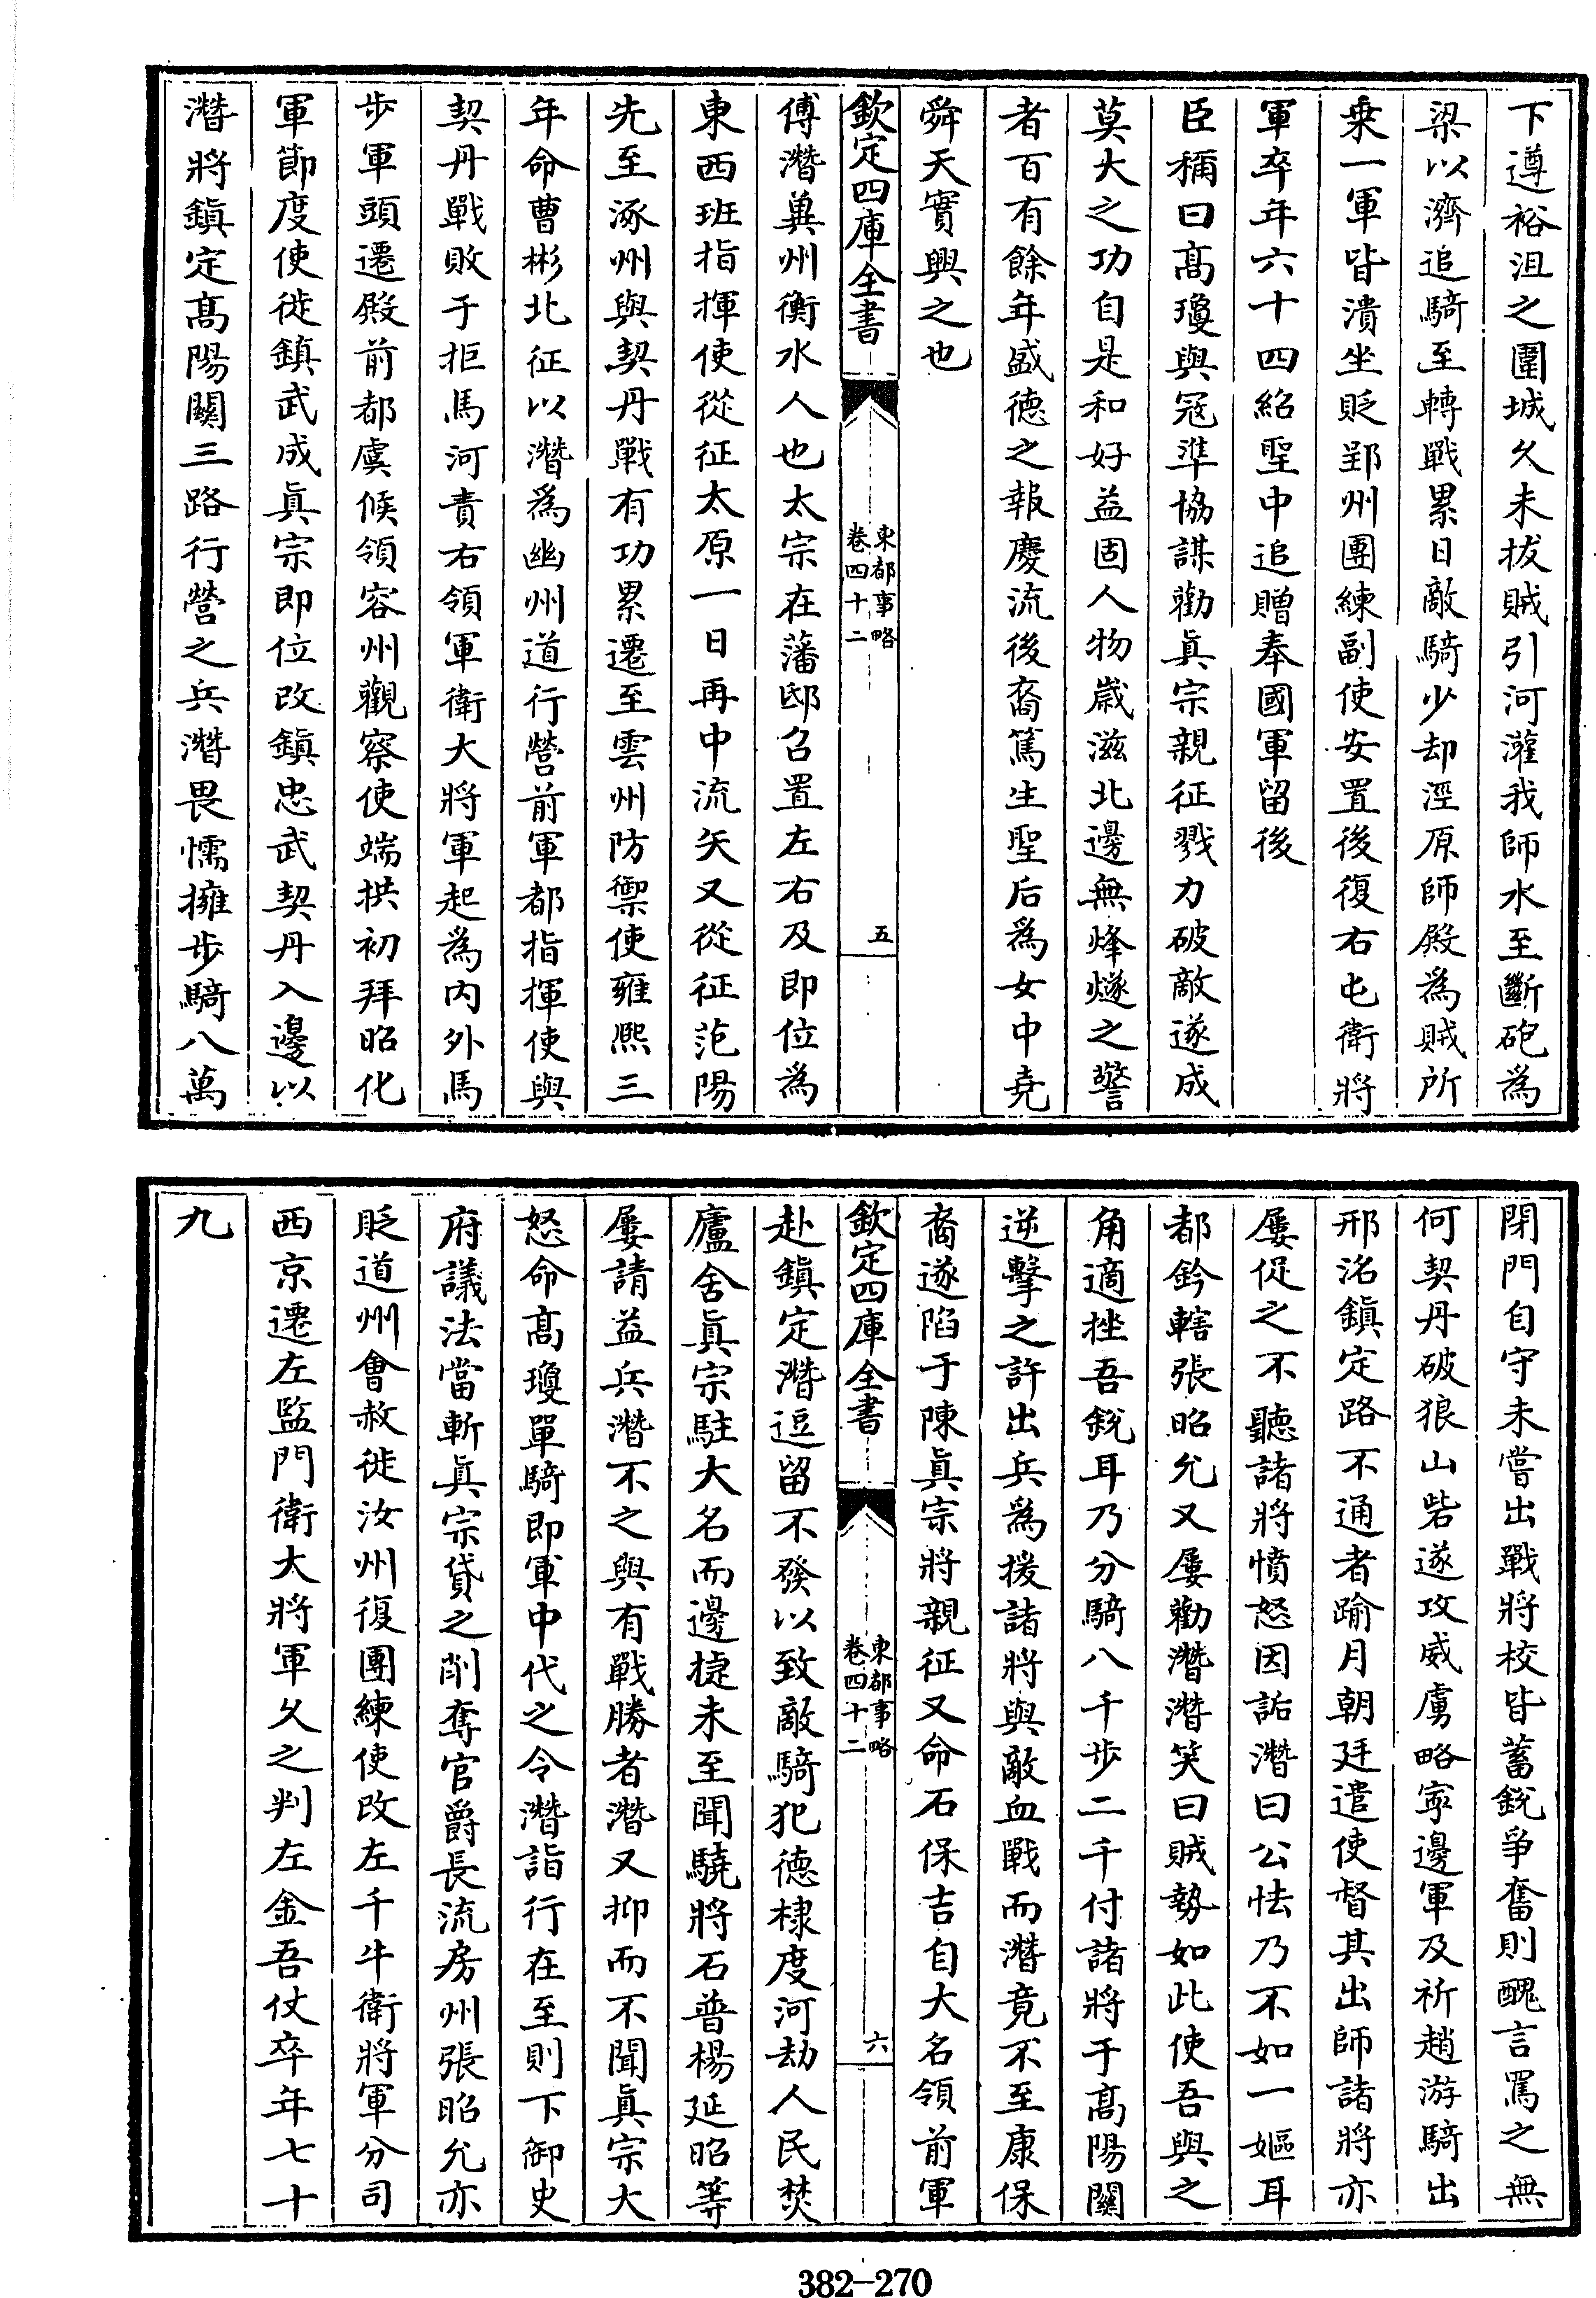 下遵裕沮之圍城久未拔賊引河灌我師水至斷砲為
梁以濟追騎至轉戰累日敵騎少却涇原師殿為賊所
乗一軍皆潰坐貶郢州團練副使安置後復右屯衛將
軍卒年六十四紹聖中追贈奉國軍留後
臣稱曰髙瓊與冦準協謀勸眞宗親征戮力破敵遂成
莫大之功自是和好益固人物嵗滋北邊無烽燧之警
者百有餘年盛德之報慶流後裔篤生聖后為女中堯
舜天實興之也
欽定四庫全書
東都事略
卷四十二
五
傅潛冀州衡水人也太宗在藩邸召置左右及即位為
東西班指揮使從征太原一日再中流矢又從征范陽
先至涿州與契丹戰有功累遷至雲州防禦使雍熙三
年命曹彬北征以潛為幽州道行營前軍都指揮使與
契丹戰敗于拒馬河責右領軍衛大將軍起為内外馬
步軍頭遷殿前都虞候領容州觀察使端拱初拜昭化
軍節度使徙鎮武成眞宗即位改鎮忠武契丹入邊以
潛將鎮定髙陽關三路行營之兵潛畏懦擁步騎八萬
閉門自守未嘗出戰將校皆蓄鋭爭奮則醜言罵之無
何契丹破狼山砦遂攻威虜略寜邊軍及祈趙游騎出
邢洺鎮定路不通者踰月朝廷遣使督其出師諸將亦
屢促之不聽諸將憤怒因詬潛曰公怯乃不如一嫗耳
都鈐轄張昭允又屢勸潛潛笑曰賊勢如此使吾與之
角適挫吾鋭耳乃分騎八千步二千付諸將于髙陽關
逆擊之許出兵為援諸將與敵血戰而潛竟不至康保
裔遂陷于陳眞宗將親征又命石保吉自大名領前軍
欽定四庫全書
東都事略
卷四十二
六
赴鎮定潛逗留不發以致敵騎犯德棣度河劫人民焚
廬舍眞宗駐大名而邊捷未至聞驍將石普楊延昭等
屢請益兵潛不之與有戰勝者潛又抑而不聞眞宗大
怒命髙瓊單騎即軍中代之令潛詣行在至則下御史
府議法當斬眞宗貸之削奪官爵長流房州張昭允亦
貶道州會赦徙汝州復團練使改左千牛衛將軍分司
西京遷左監門衛大將軍久之判左金吾仗卒年七十
九
382-270